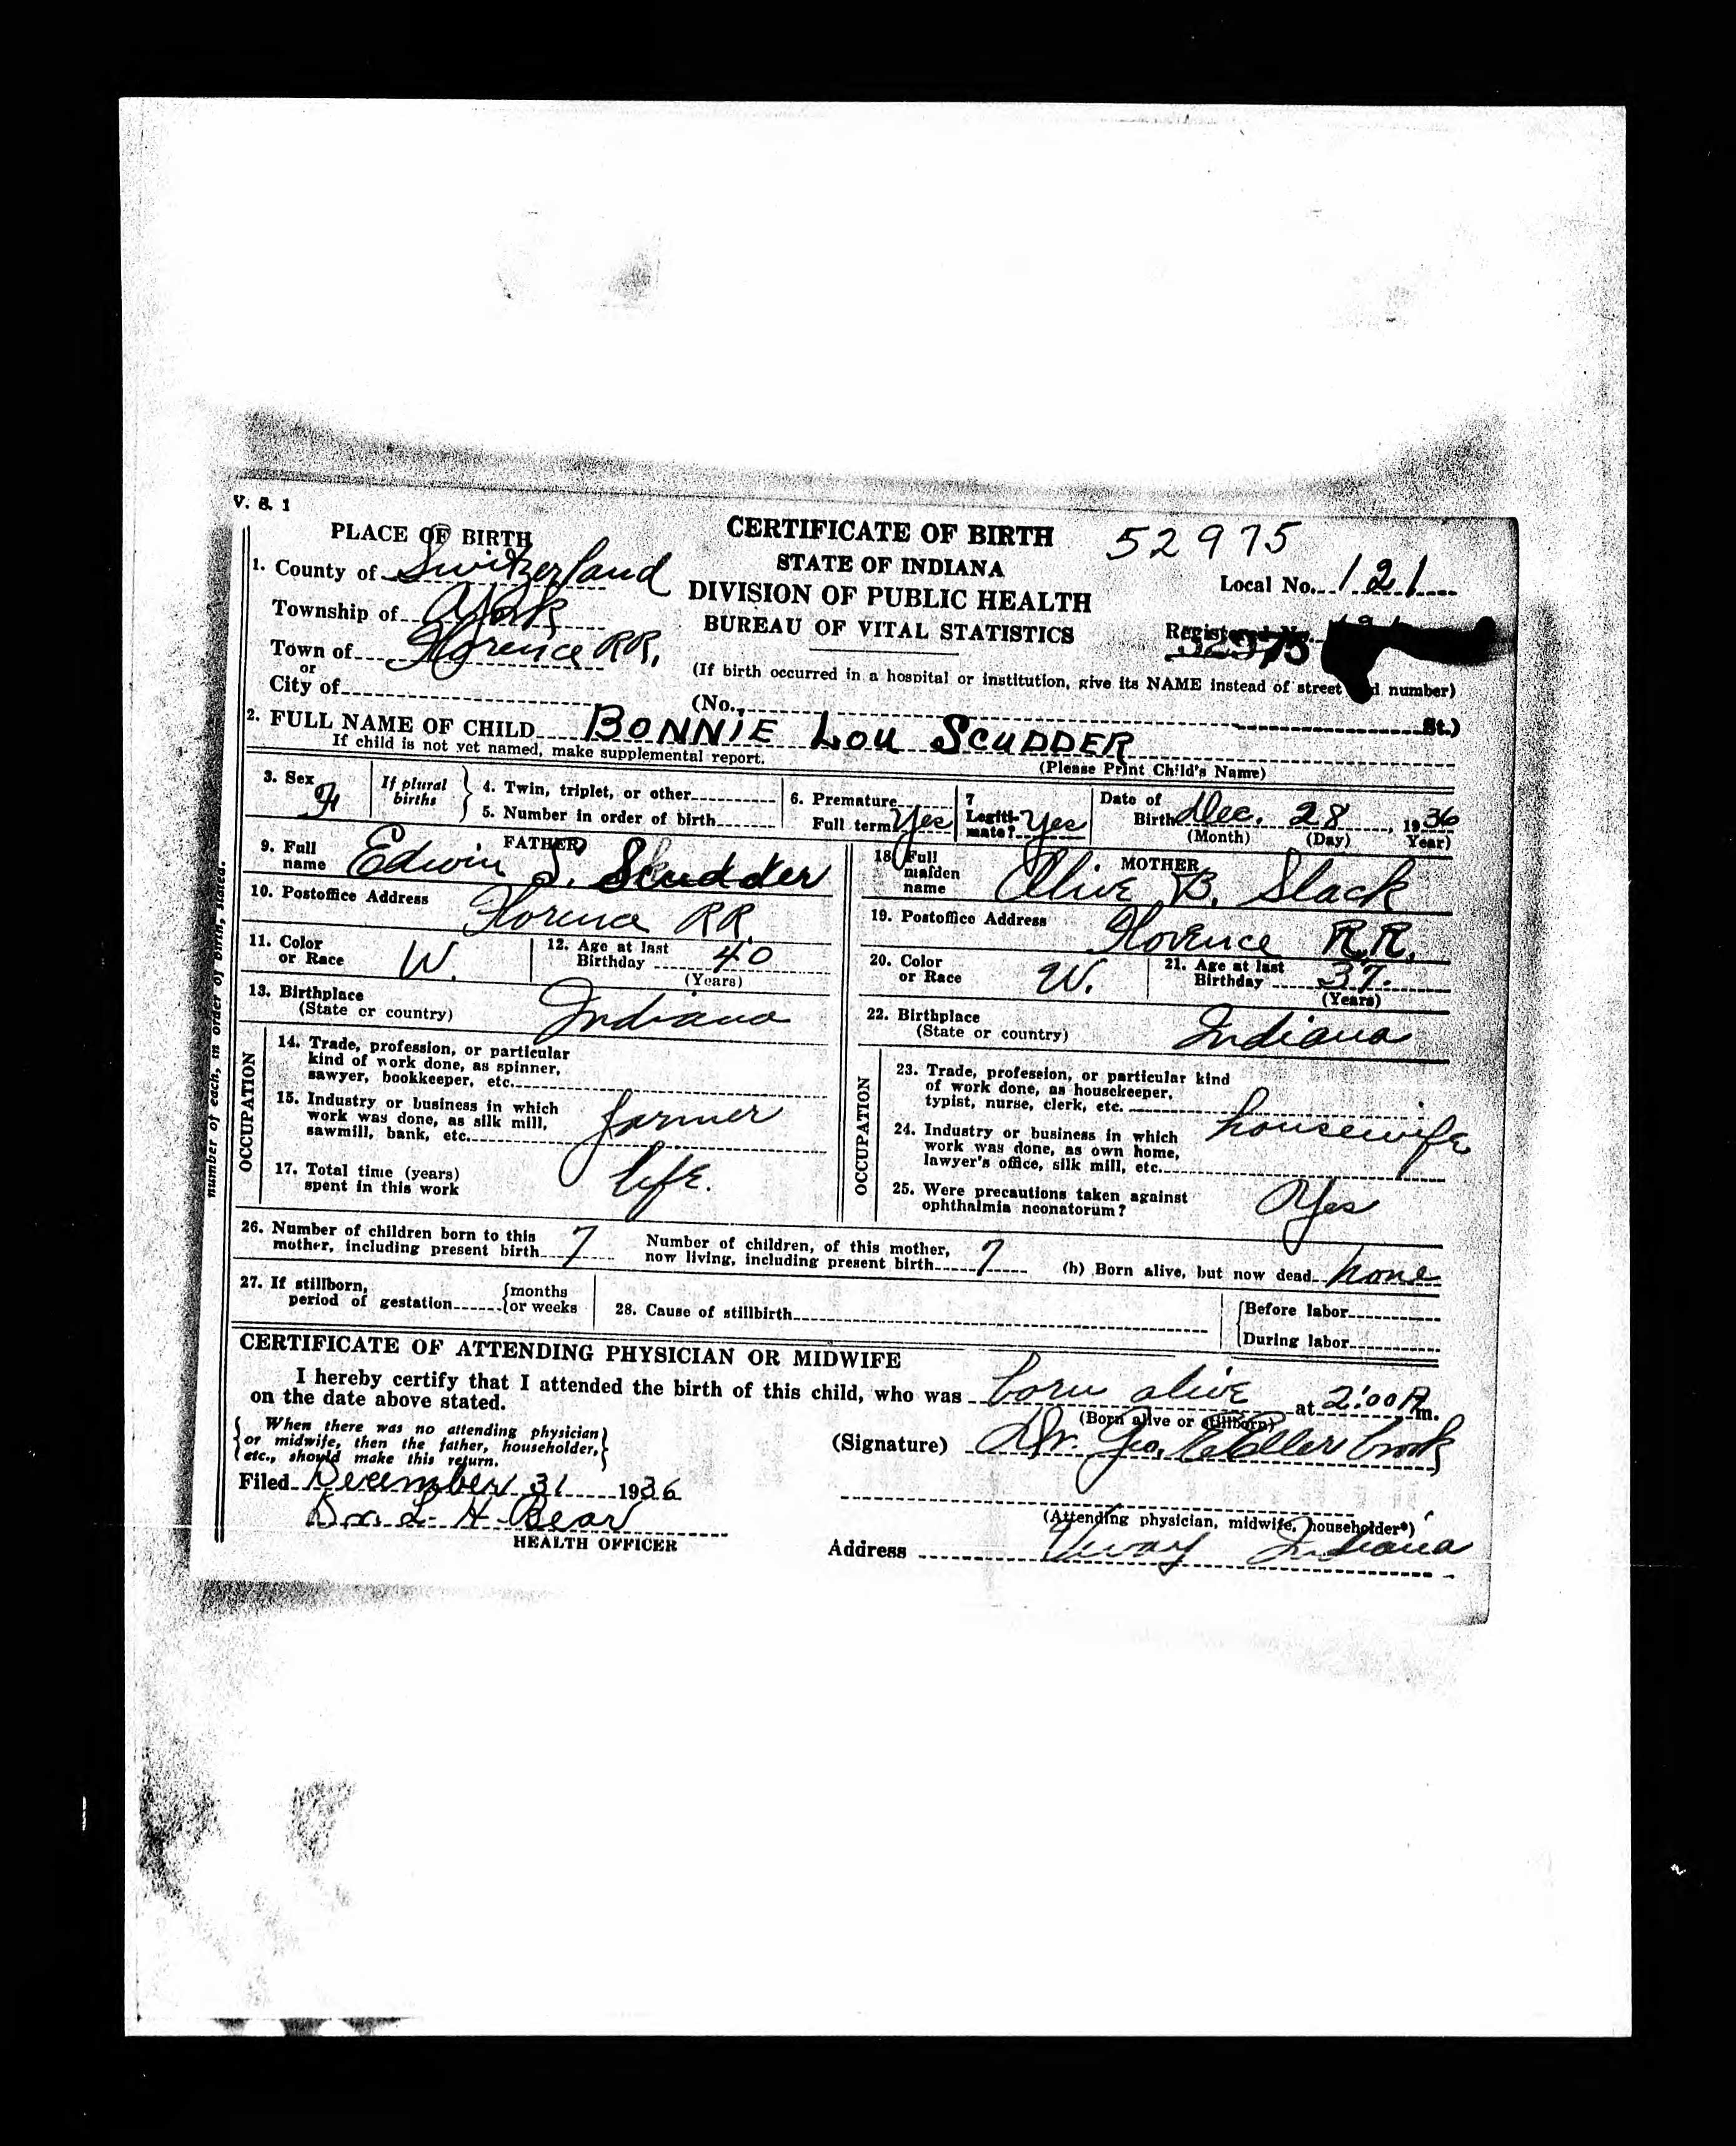 V. S. 1
PLACE OF BIRTH
CERTIFICATE OF BIRTH
52975
STATE OF INDIANA
1. County of Switzerland
Local No. 121
DIVISION OF PUBLIC HEALTH
Township of York
BUREAU OF VITAL STATISTICS
Registered No.
52975
Town of Florence RR,
or
(If birth occurred in a hospital or institution, give its NAME instead of street and number)
City of
(No. St.)
2. FULL NAME OF CHILD BONNIE LOU SCUDDER
If child is not yet named, make supplemental report.
(Please Print Child's Name)
3. Sex F
If plural births
4. Twin, triplet, or other
5. Number in order of birth
6. Premature
Full term Yes
7 Legiti-
mate? Yes
Date of
Birth Dec. 28, 1936
(Month) (Day) Year)
FATHER
9. Full
name Edwin S. Scudder
10. Postoffice Address Florence RR.
11. Color
or Race W.
12. Age at last
Birthday 40
(Years)
13. Birthplace
(State or country) Indiana
OCCUPATION
14. Trade, profession, or particular
kind of work done, as spinner,
sawyer, bookkeeper, etc.
15. Industry or business in which
work was done, as silk mill,
sawmill, bank, etc. farmer
17. Total time (years)
spent in this work life.
MOTHER
18 Full
maiden
name Olive B. Slack
19. Postoffice Address Florence R.R.
20. Color
or Race W.
21. Age at last
Birthday 37.
(Years)
22. Birthplace
(State or country) Indiana
OCCUPATION
23. Trade, profession, or particular kind
of work done, as housekeeper,
typist, nurse, clerk, etc. housewife
24. Industry or business in which
work was done, as own home,
lawyer's office, silk mill, etc.
25. Were precautions taken against
ophthalmia neonatorum? Yes
number of each, in order of birth, stated.
26. Number of children born to this
mother, including present birth 7
Number of children, of this mother,
now living, including present birth 7
(b) Born alive, but now dead none
27. If stillborn,
period of gestation
months
or weeks
28. Cause of stillbirth
Before labor
During labor
CERTIFICATE OF ATTENDING PHYSICIAN OR MIDWIFE
I hereby certify that I attended the birth of this child, who was born alive at 2:00 A m.
on the date above stated.
(Born alive or stillborn)
When there was no attending physician
or midwife, then the father, householder,
etc., should make this return.
(Signature) Dr. Geo. Ellerbrook
Filed December 31 1936
(Attending physician, midwife, householder*)
L. H. Bear
HEALTH OFFICER
Address Vevay Indiana